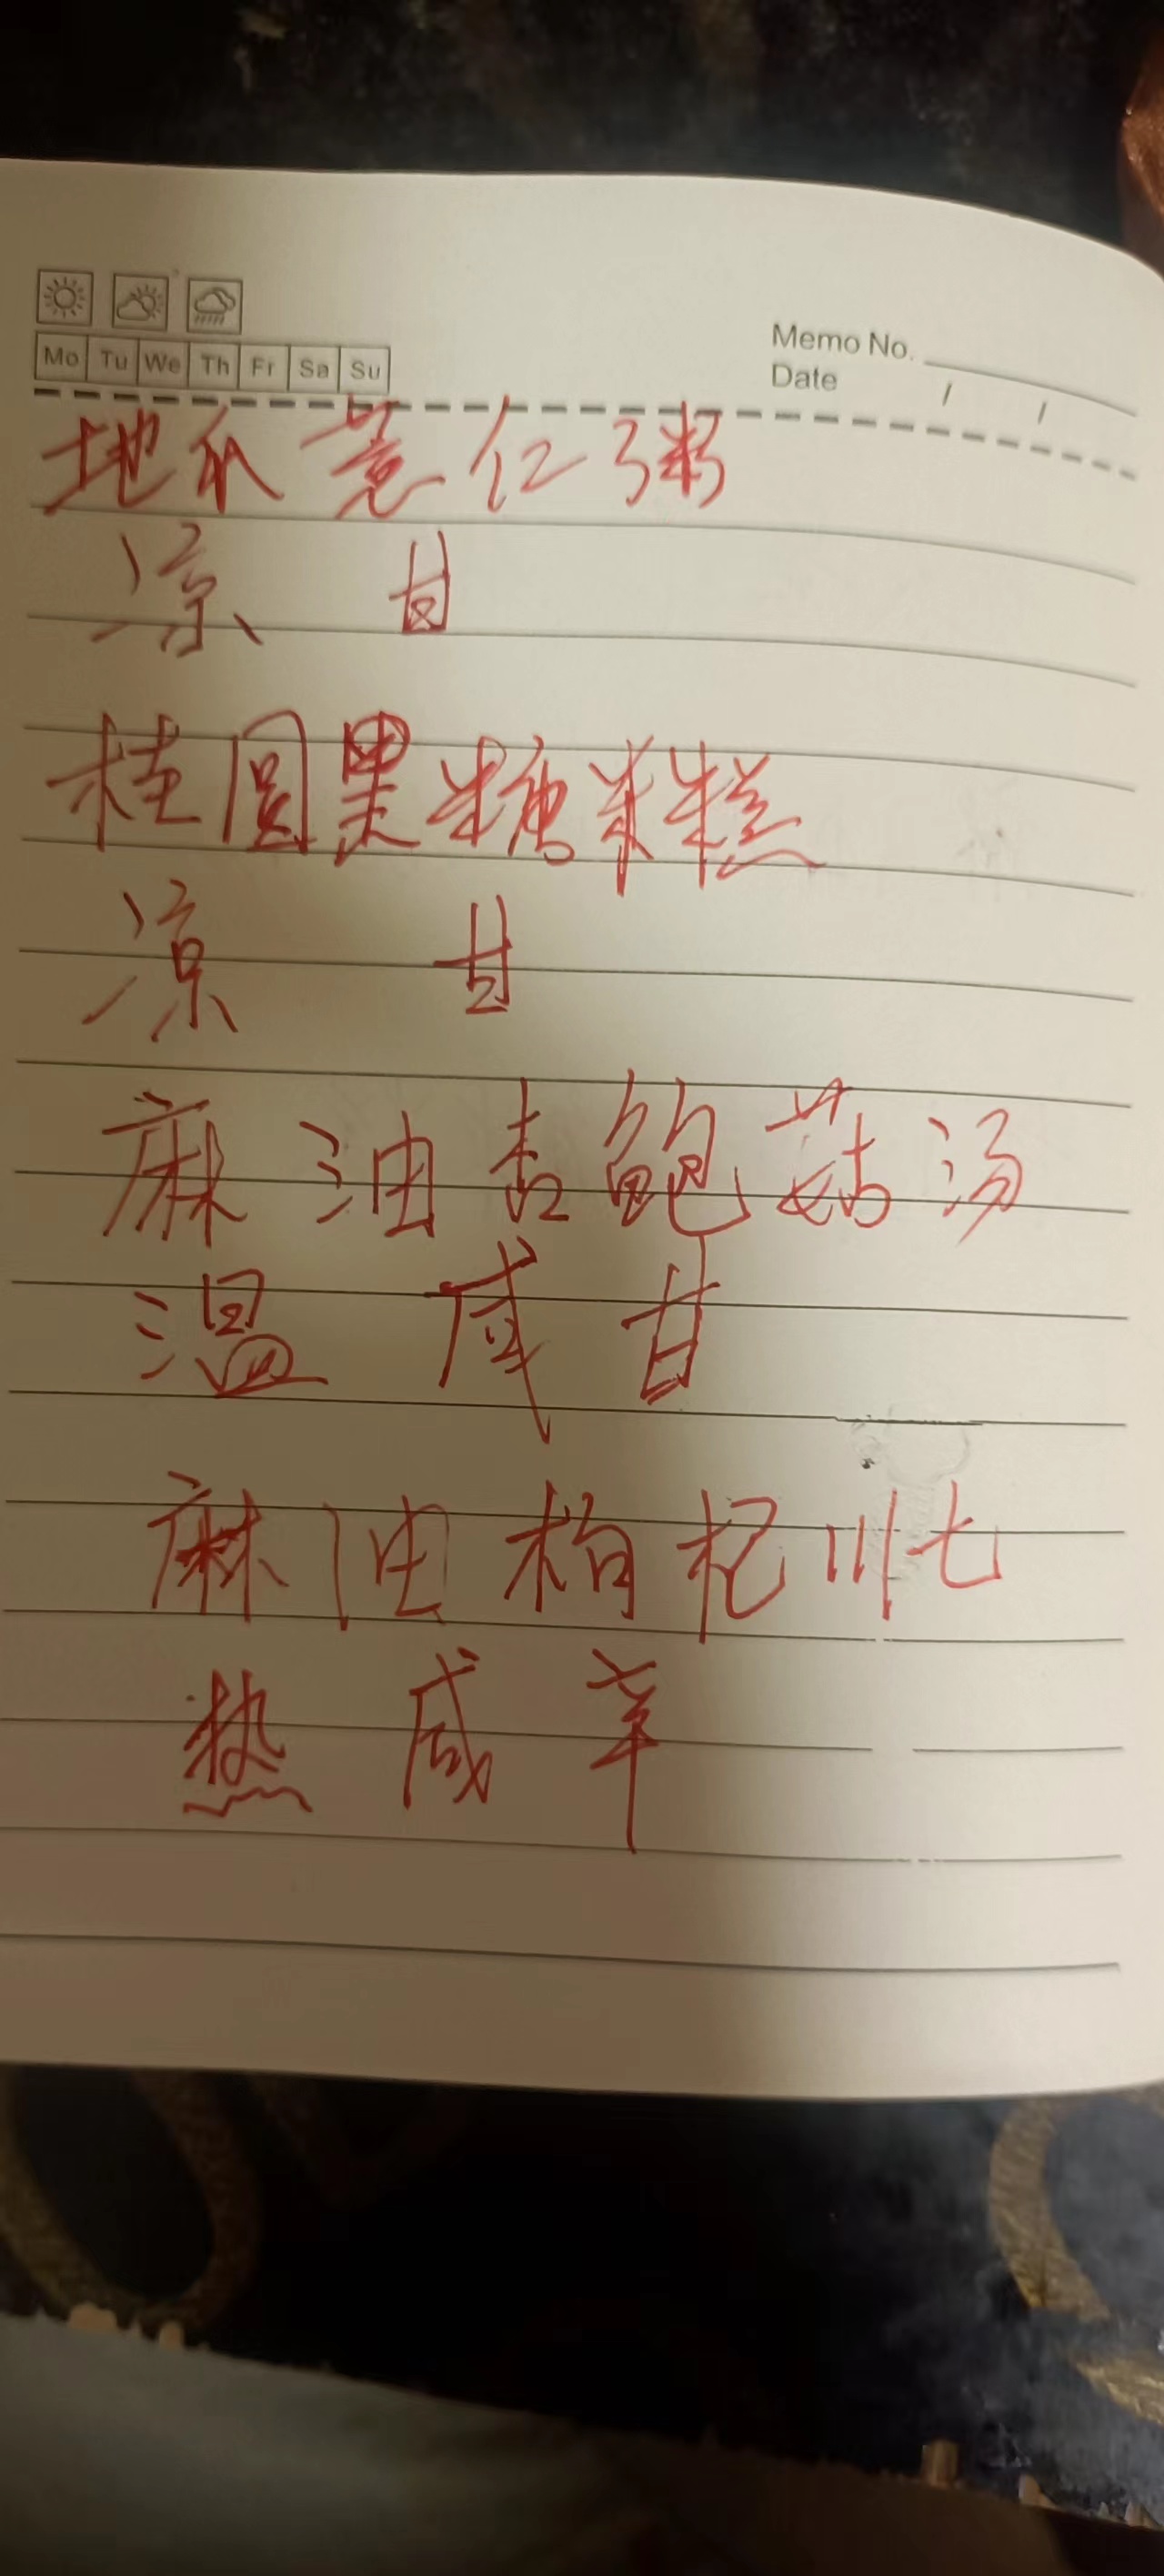 Mo Tu We Th Fr Sa Su
Memo No.
Date / /
地瓜薏仁粥
凉 甘
桂圆黑糖米糕
凉 甘
麻油杏鲍菇汤
温 咸 甘
麻油枸杞川七
热 咸 辛